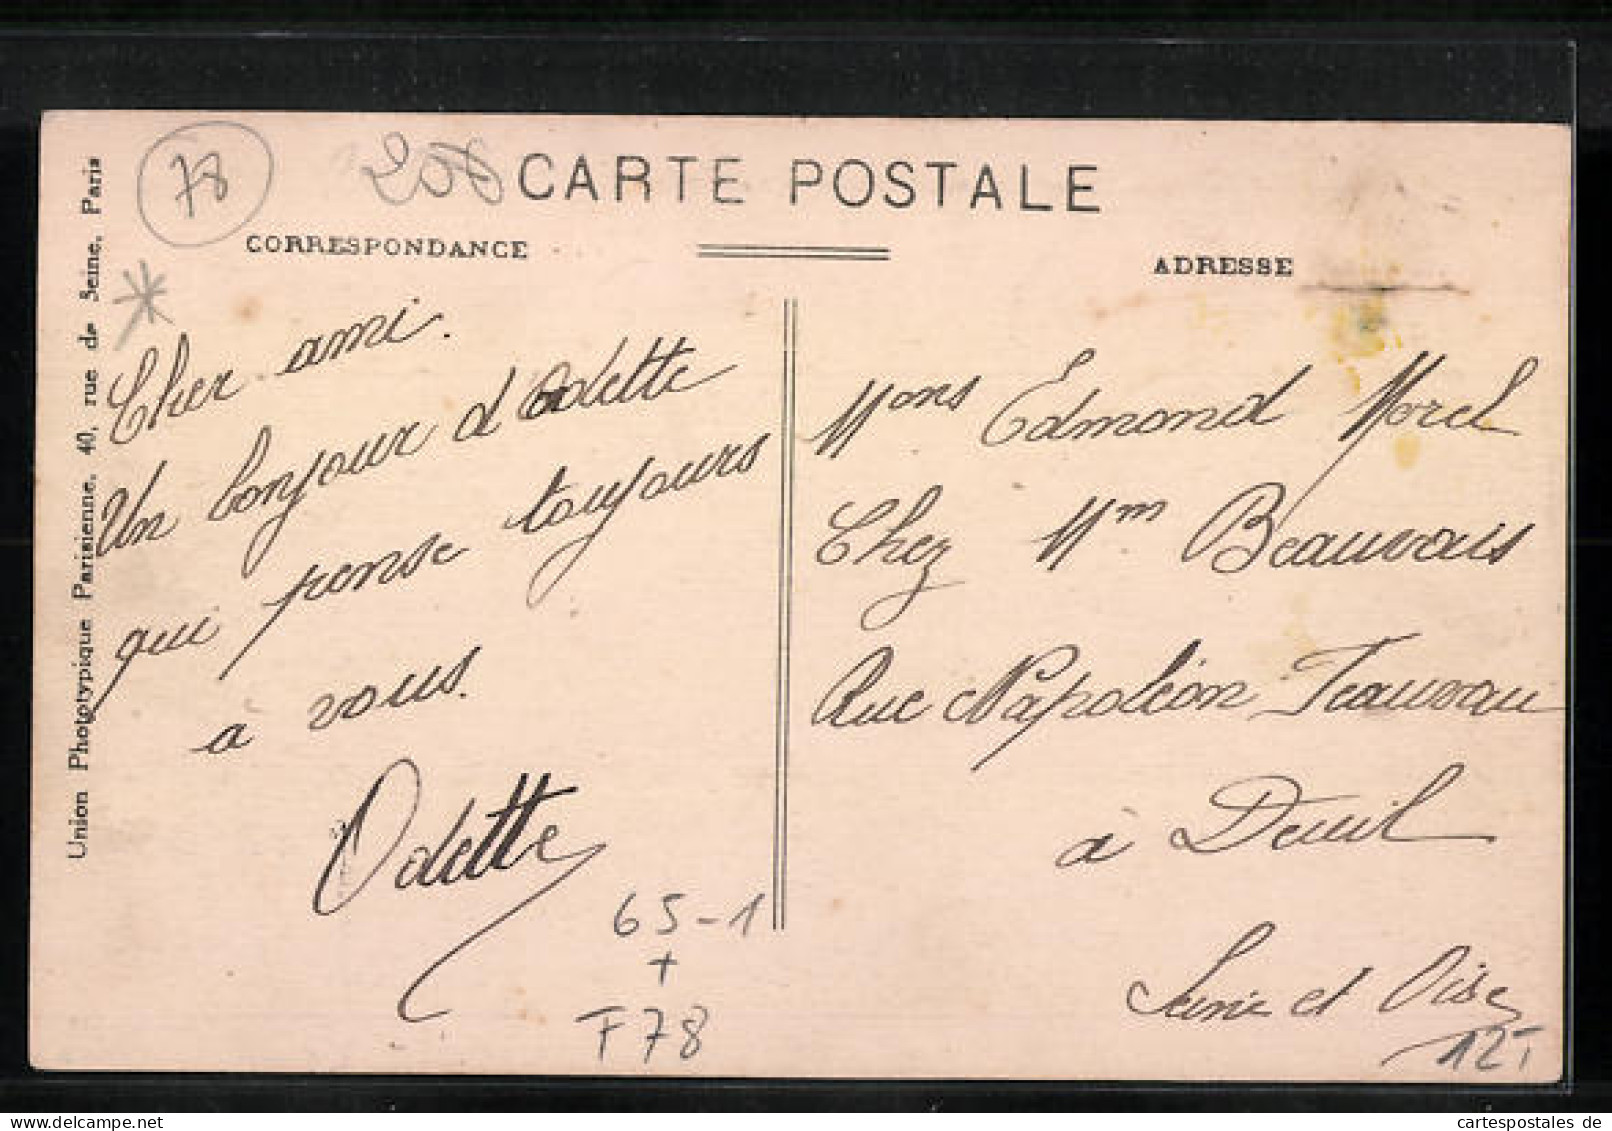 78
200
CARTE POSTALE
CORRESPONDANCE
ADRESSE
Union Phototypique Parisienne, 40, rue de Seine, Paris
Cher ami.
Un bonjour d Odette
qui pense toujours
à vous.
Odette
65-1
+
F78
Mons Edmond Morel
Chez Mm Beauvais
Rue Napoléon Fauveau
à Deuil
Seine et Oise
12T
cartespostales de